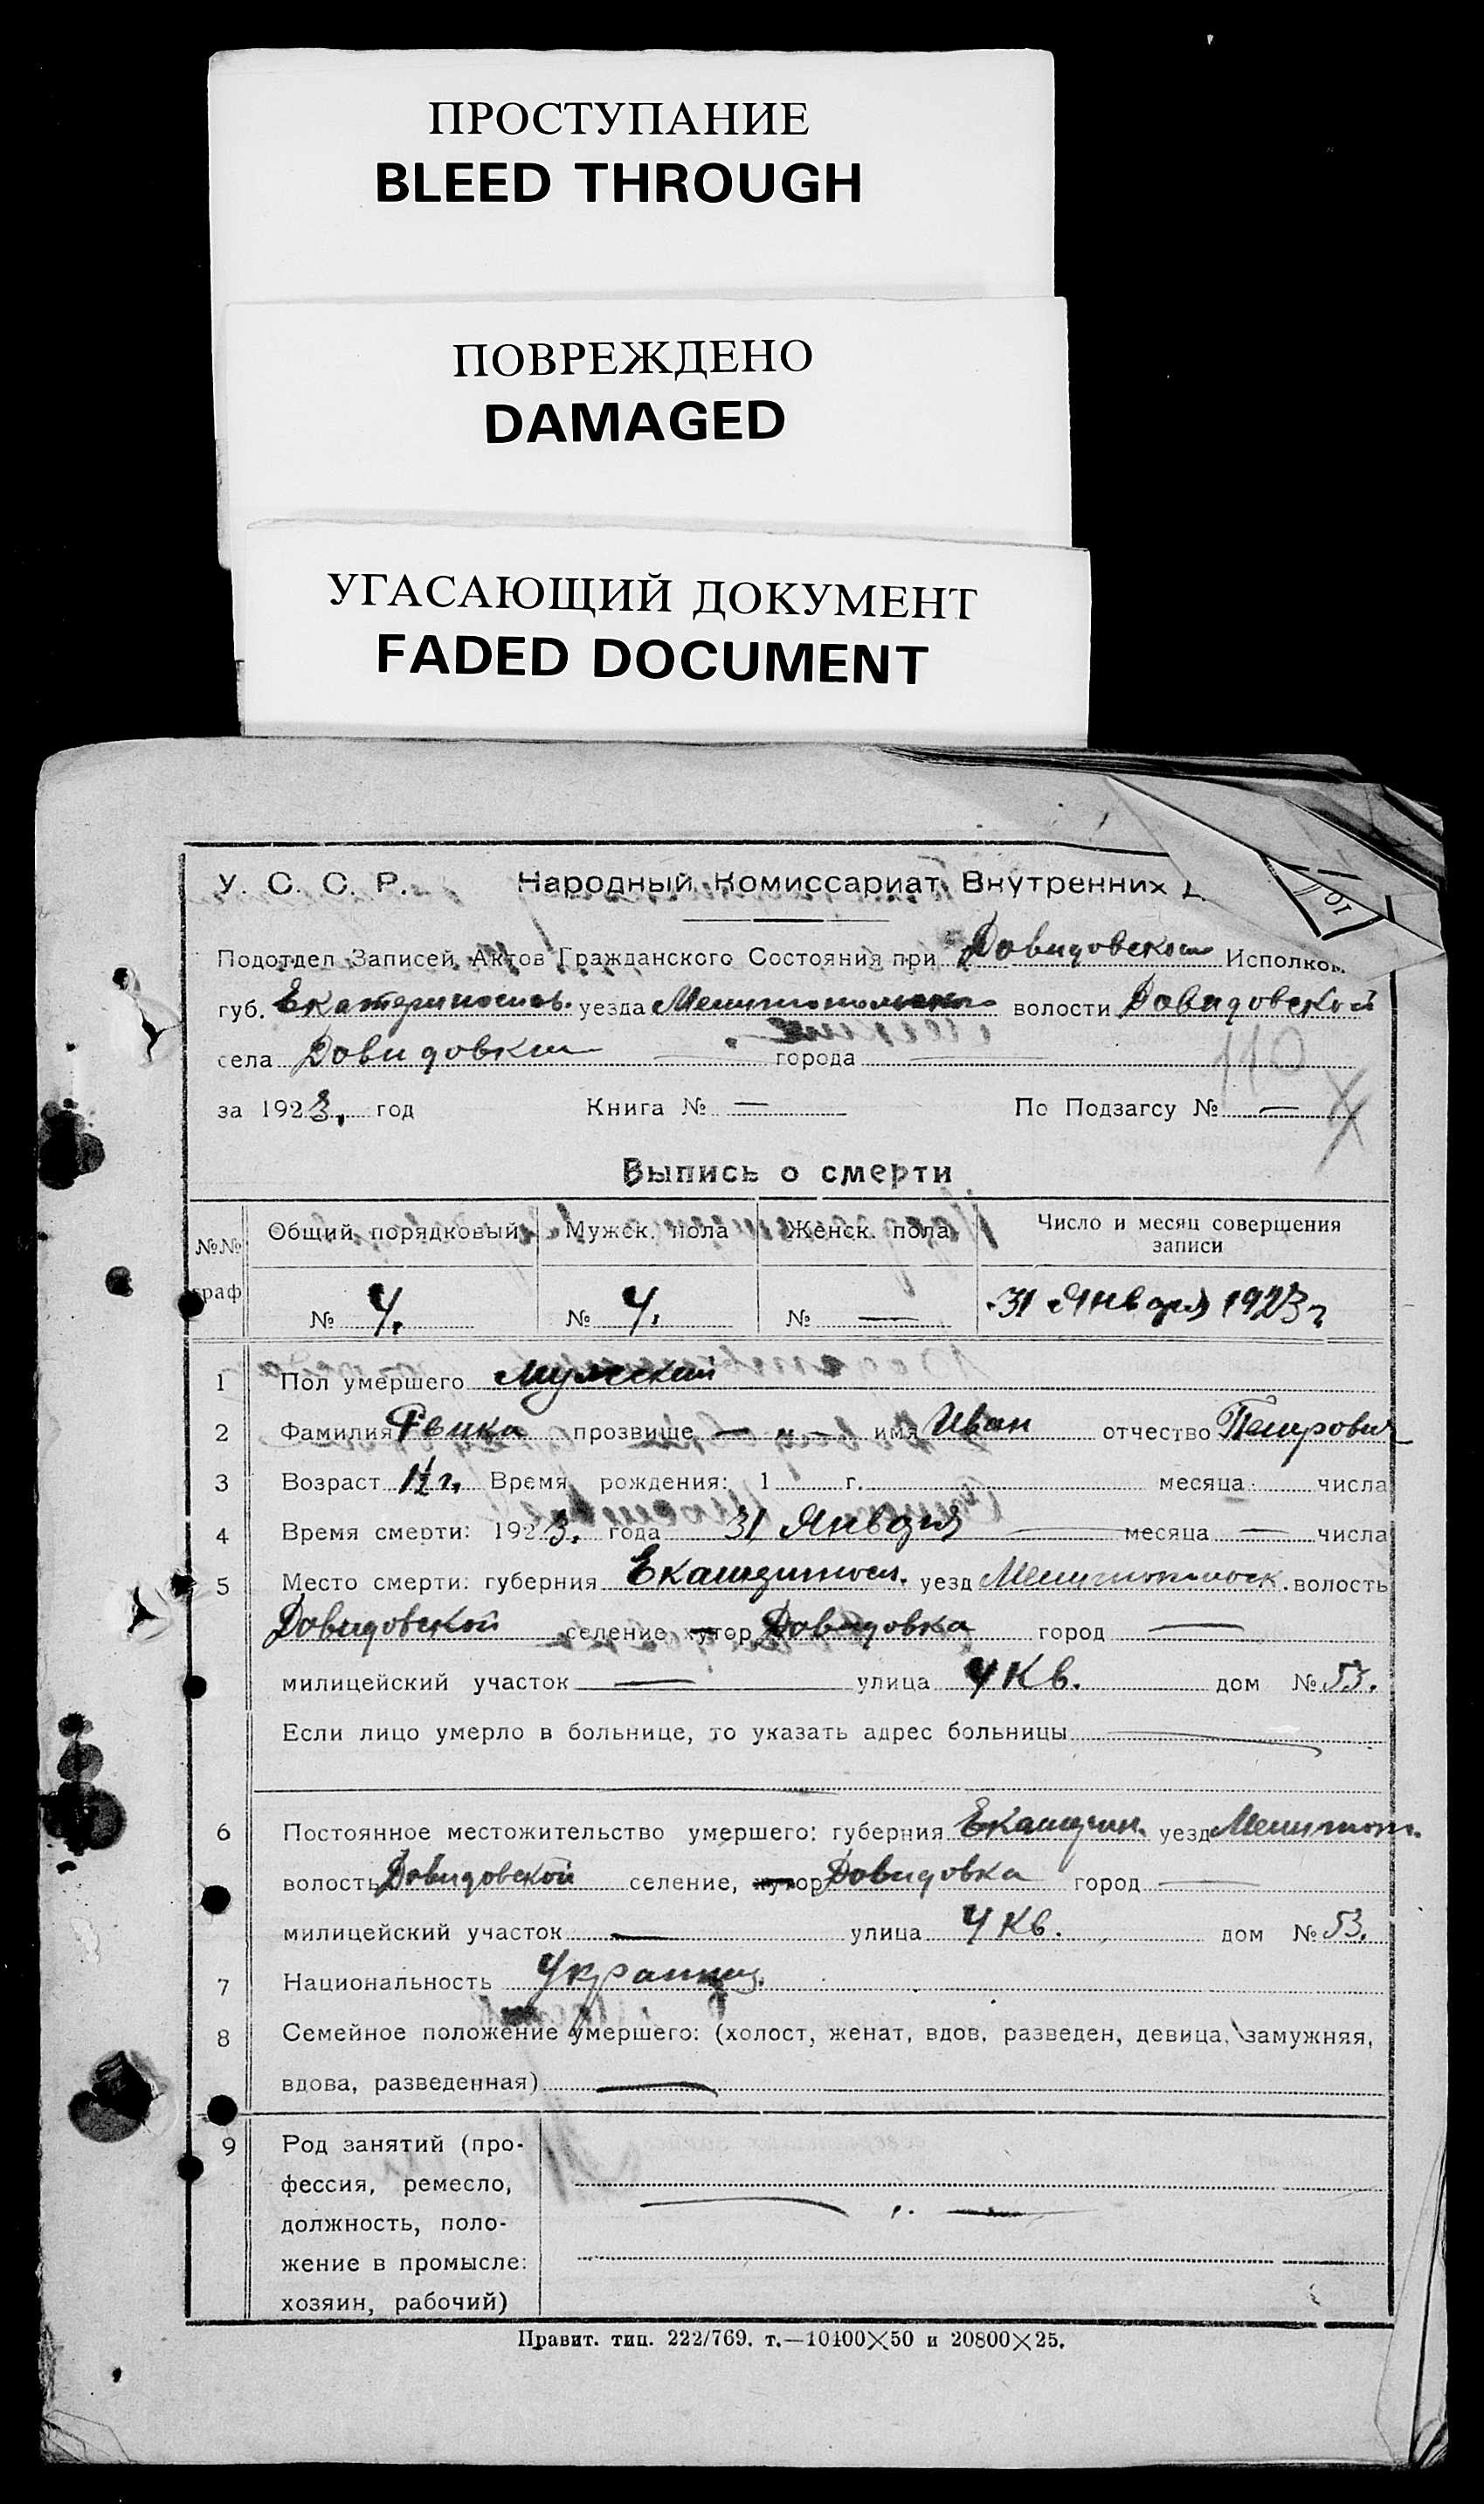 ПРОСТУПАНИЕ
BLEED THROUGH
ПОВРЕЖДЕНО
DAMAGED
УГАСАЮЩИЙ ДОКУМЕНТ
FADED DOCUMENT
У. С. С. Р. Народный Комиссариат Внутренних Д
Подотдел Записей Актов Гражданского Состояния при Довидовском Исполком.
губ. Екатеринослав. уезда Мелитопольского волости Довидовской
села Довидовки — города —
110
за 1923, год Книга № — По Подзагсу № —
Выпись о смерти
№№ граф Общий порядковый Мужск. пола Женск. пола Число и месяц совершения записи
№ 4. № 4. № — 31 Января 1923 г
1 Пол умершего Мужской
2 Фамилия прозвище — „ — имя Иван отчество Петрович
3 Возраст 1½ г. Время рождения: 1 г. месяца числа
4 Время смерти: 1923. года 31 Января — месяца — числа
5 Место смерти: губерния Екатеринос. уезд Мелитопольск. волость
Довидовской селение хутор Довидовка город —
милицейский участок — улица 4 Кв. дом № 53.
Если лицо умерло в больнице, то указать адрес больницы —
6 Постоянное местожительство умершего: губерния Екатерин. уезд Мелитоп.
волость Довидовской селение, хутор Довидовка город —
милицейский участок — улица 4 Кв. дом № 53.
7 Национальность Украинец.
8 Семейное положение умершего: (холост, женат, вдов, разведен, девица, замужняя,
вдова, разведенная) —
9 Род занятий (про-
фессия, ремесло,
должность, поло-
жение в промысле:
хозяин, рабочий)
Правит. тип. 222/769. т.—10400×50 и 20800×25.